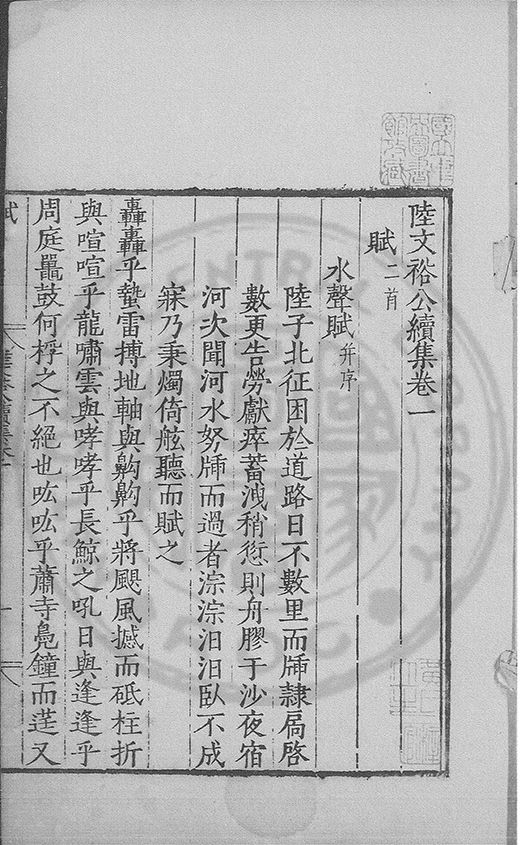 陸文裕公續集卷一
賦二首
水聲賦并序
陸子北征困於道路日不數里而牐隷扃啓
數更告勞獻瘁蓄洩稍愆則舟膠于沙夜宿
河次聞河水努牐而過者淙淙汨汨臥不成
寐乃秉燭倚舷聽而賦之
轟轟乎蟄雷搏地軸與齁齁乎將颶風撼而砥柱折
與喧喧乎龍嘯雲與哮哮乎長鯨之吼日與逢逢乎
周庭鼉鼓何桴之不絕也吰吰乎蕭寺鳧鐘而莛又